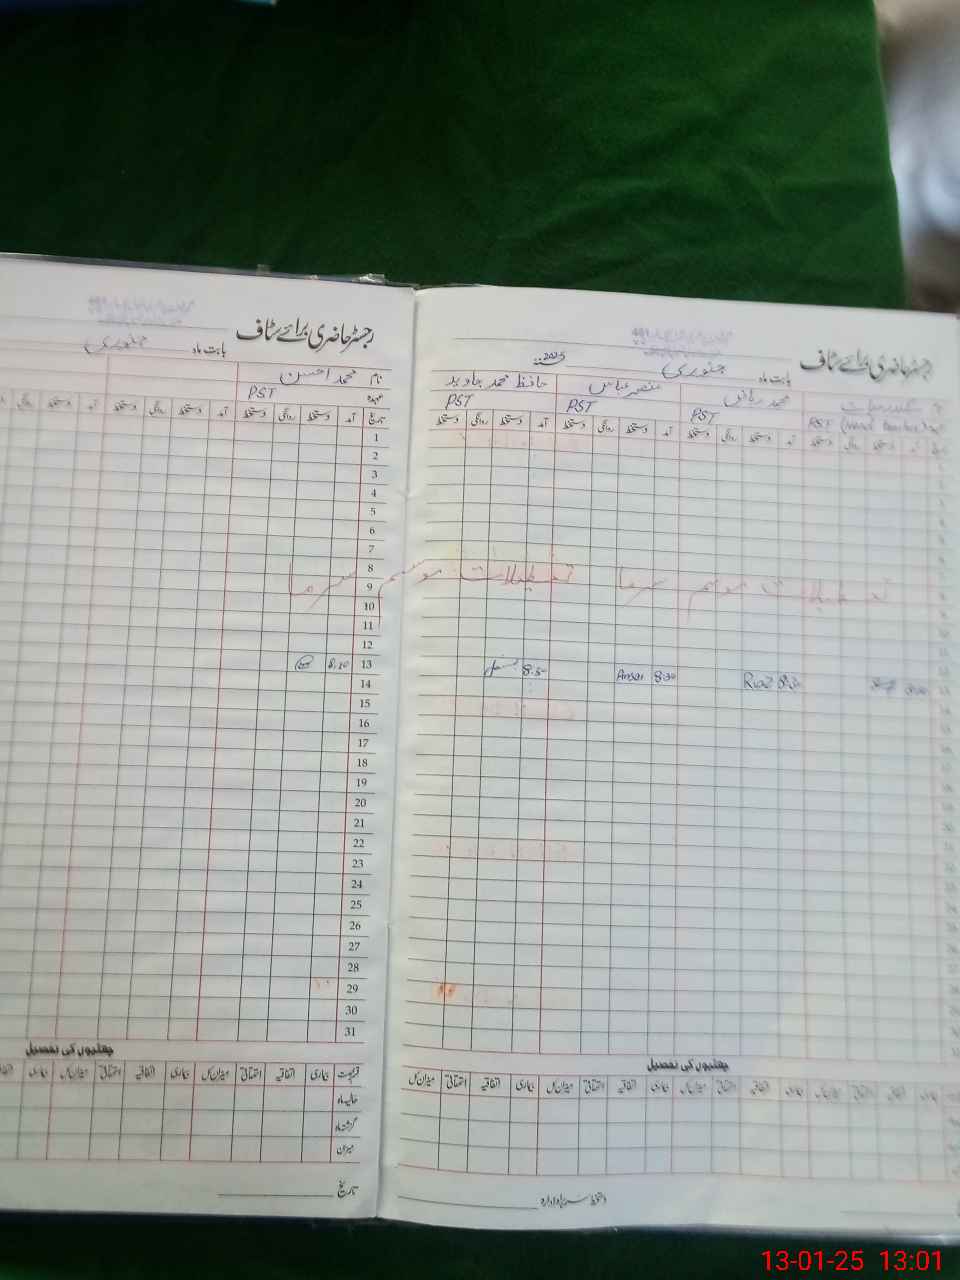 رجسٹر حاضری برائے سٹاف
بابت ماہ جنوری 2025
محمد ریاض
منصر عباس
حافظ محمد جاوید
PST (Head Teacher)
PST
PST
PST
آمد دستخط روانگی دستخط آمد دستخط روانگی دستخط آمد دستخط روانگی دستخط آمد دستخط روانگی دستخط
تعطیلات موسم سرما
تعطیلات موسم سرما
Riaz 8.30
Ansar 8:30
8.50
چھٹیوں کی تفصیل
بیماری اتفاقیہ استحقاقی میزان کل بیماری اتفاقیہ استحقاقی میزان کل بیماری اتفاقیہ استحقاقی میزان کل
دستخط سربراہ ادارہ
رجسٹر حاضری برائے سٹاف
بابت ماہ جنوری
نام محمد احسن
عہدہ PST
تاریخ آمد دستخط روانگی دستخط آمد دستخط روانگی دستخط آمد دستخط روانگی دستخط
1
2
3
4
5
6
7
8
9
10
11
12
13 8.20
14
15
16
17
18
19
20
21
22
23
24
25
26
27
28
29
30
31
چھٹیوں کی تفصیل
قسم رخصت بیماری اتفاقیہ استحقاقی میزان کل بیماری اتفاقیہ استحقاقی میزان کل بیماری اتفاقیہ
حالیہ ماہ
گزشتہ ماہ
میزان
تاریخ
13-01-25 13:01